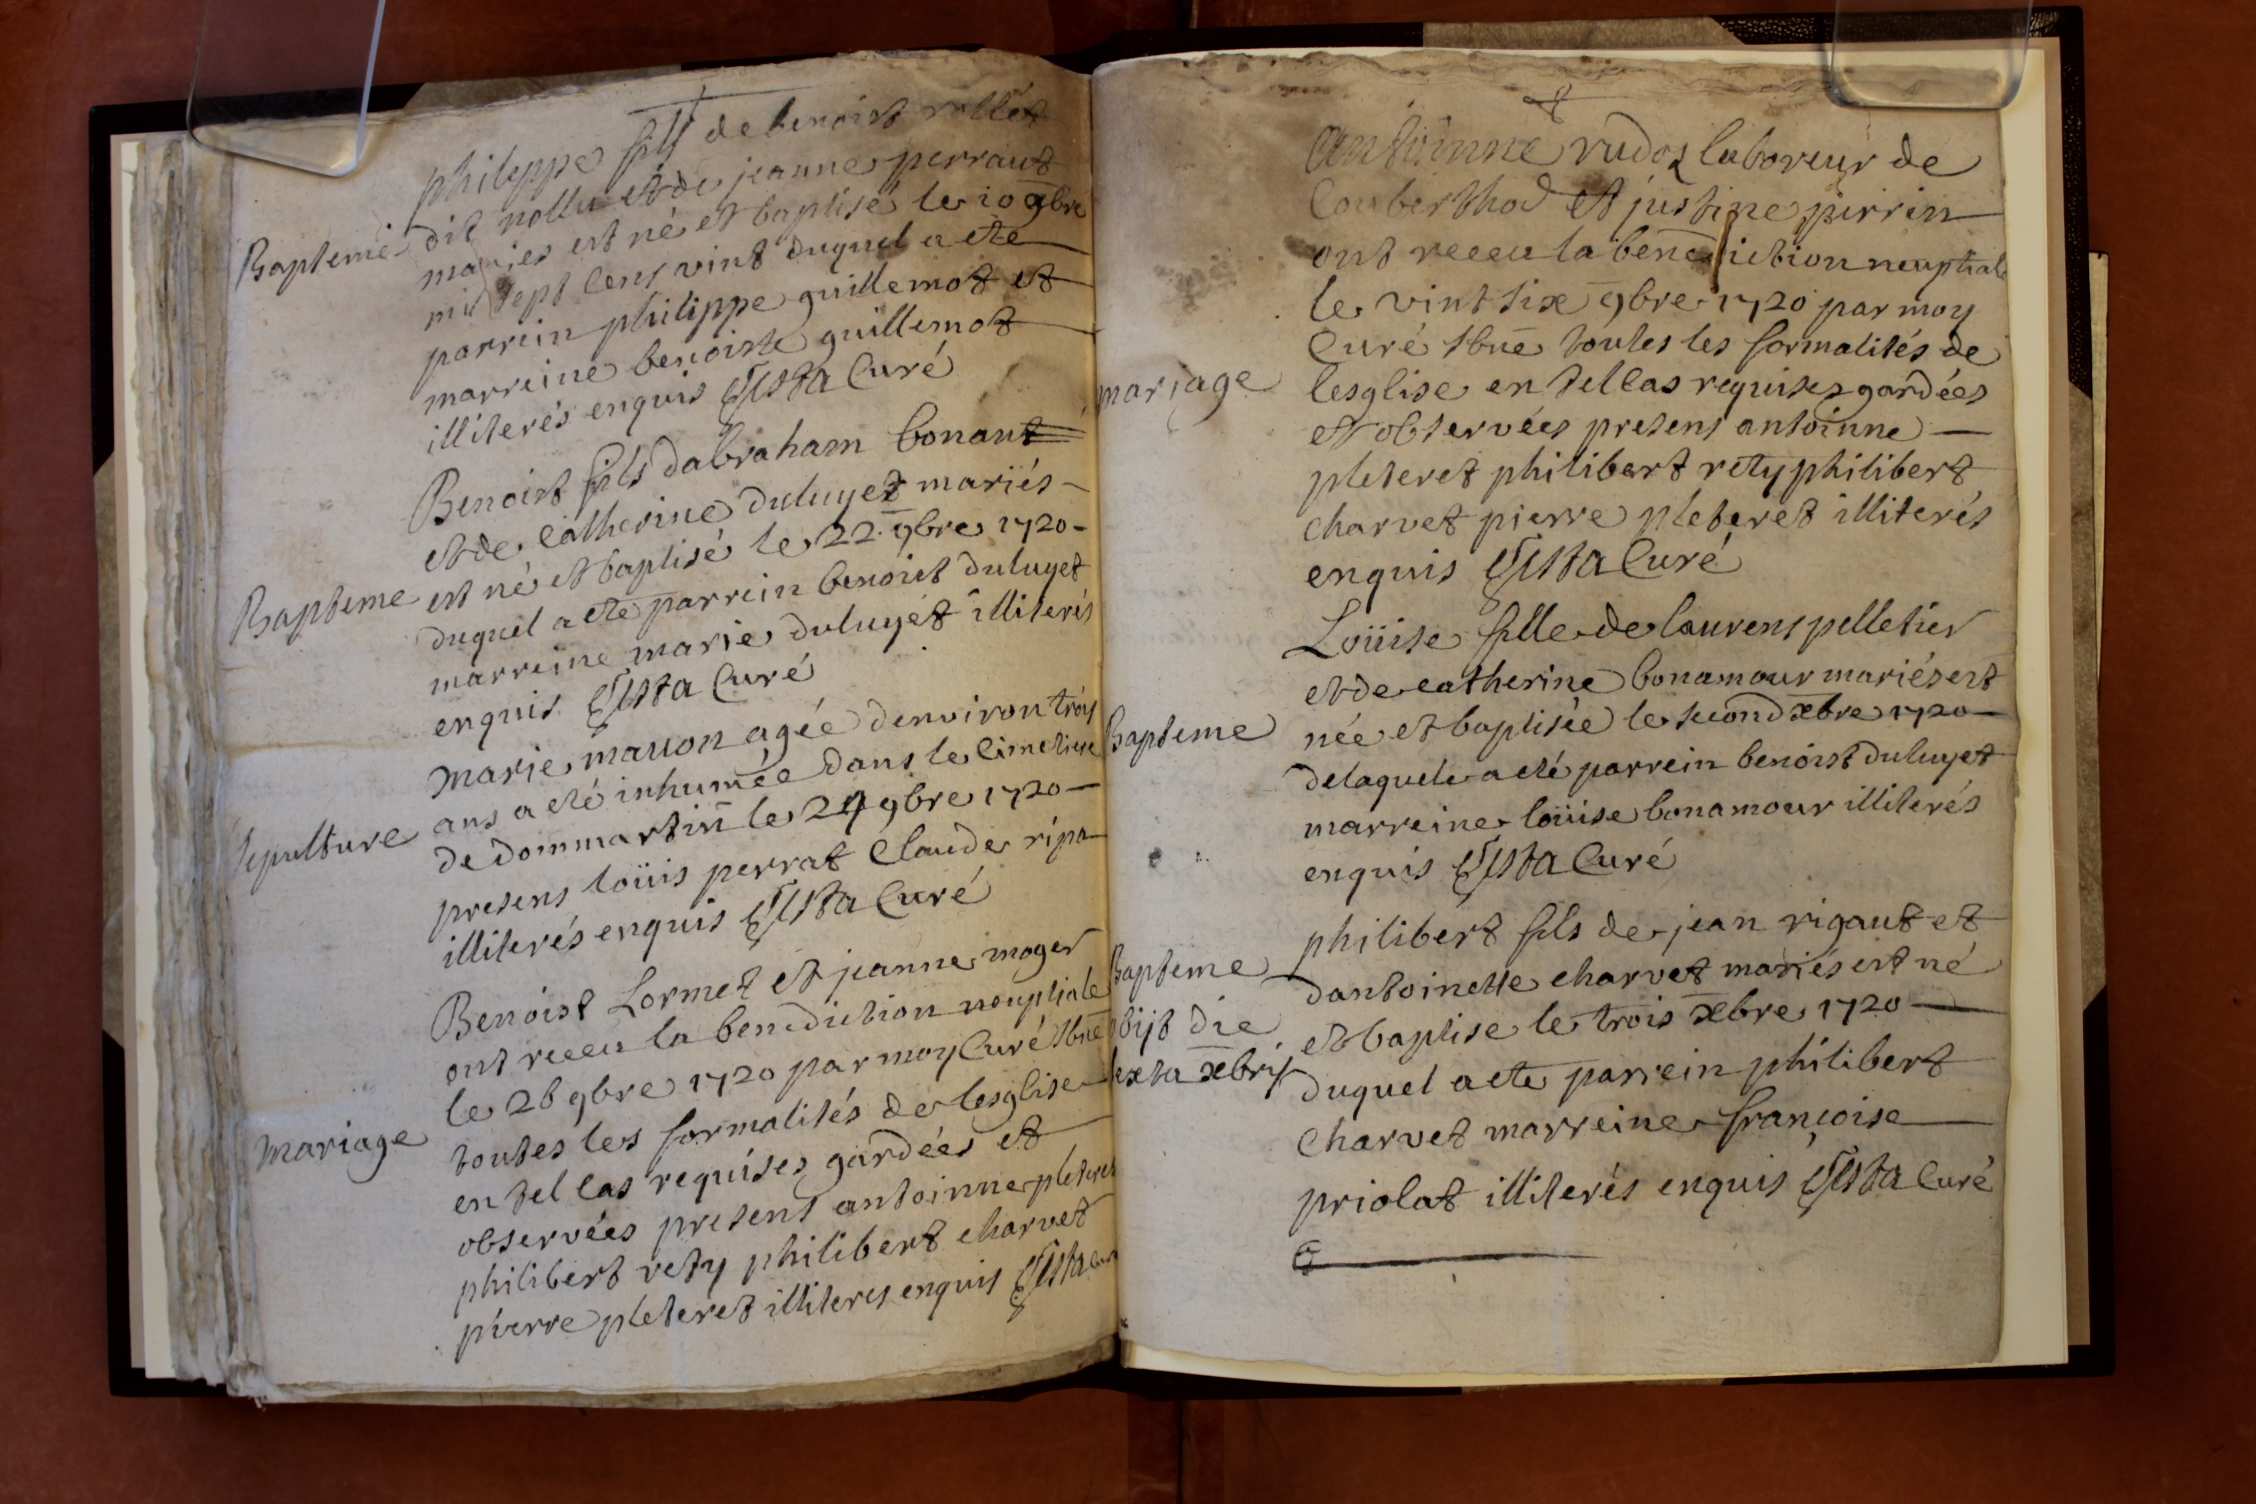 philippe fils de benoist rollet
Bapteme
dit nollu et de jeanne perraut
mariés est né et baptisé le 10 9bre
mil sept cens vint duquel a eté
parrein philippe guillemot et
marreine benoiste guillemot
illiterés enquis Gista Curé
Benoist fils dabraham bonant
et de Catherine duluyet mariés
Bapteme
est né et baptisé le 22 9bre 1720
duquel a eté parrein benoist duluyet
marreine marie duluyet illiterés
enquis Gista Curé
marie mauon agée denviron trois
ans a eté inhumée dans le Cimetiere
Sepulture
de dommartin le 24 9bre 1720
presens loüis perrat Claude ripa
illiterés enquis Gista Curé
Benoist Lormet et jeanne moger
ont receu la benediction nouptiale
le 26 9bre 1720 par moy Curé sbné
Mariage
toutes les formalités de lesglise
en tel cas requises gardées et
observées presens antoinne pleteret
philibert rety philibert charvet
pierre pleteret illiteres enquis Gista Curé
Antoinne rudoz laboreur de
Couberthod et justine perrin
ont receu la benediction nouptiale
le vint six 9bre 1720 par moy
Curé sbné toutes les formalités de
mariage
lesglise en tel cas requises gardées
et observées presens antoinne
pleteret philibert rety philibert
charvet pierre pleteret illiterés
enquis Gista Curé
Loüise fille de laurens pelletier
et de catherine bonamour mariés est
Bapteme
née et baptisée le second xbre 1720
de laquele a eté parrein benoist duluyet
marreine loüise bonamour illiterés
enquis Gista Curé
philibert fils de jean rigaut et
Bapteme
dantoinette charvet mariés est né
obijt die
et baptise le trois xbre 1720
sexta xbris
duquel a ete parrein philibert
Charvet marreine françoise
priolat illiterés enquis Gista Curé